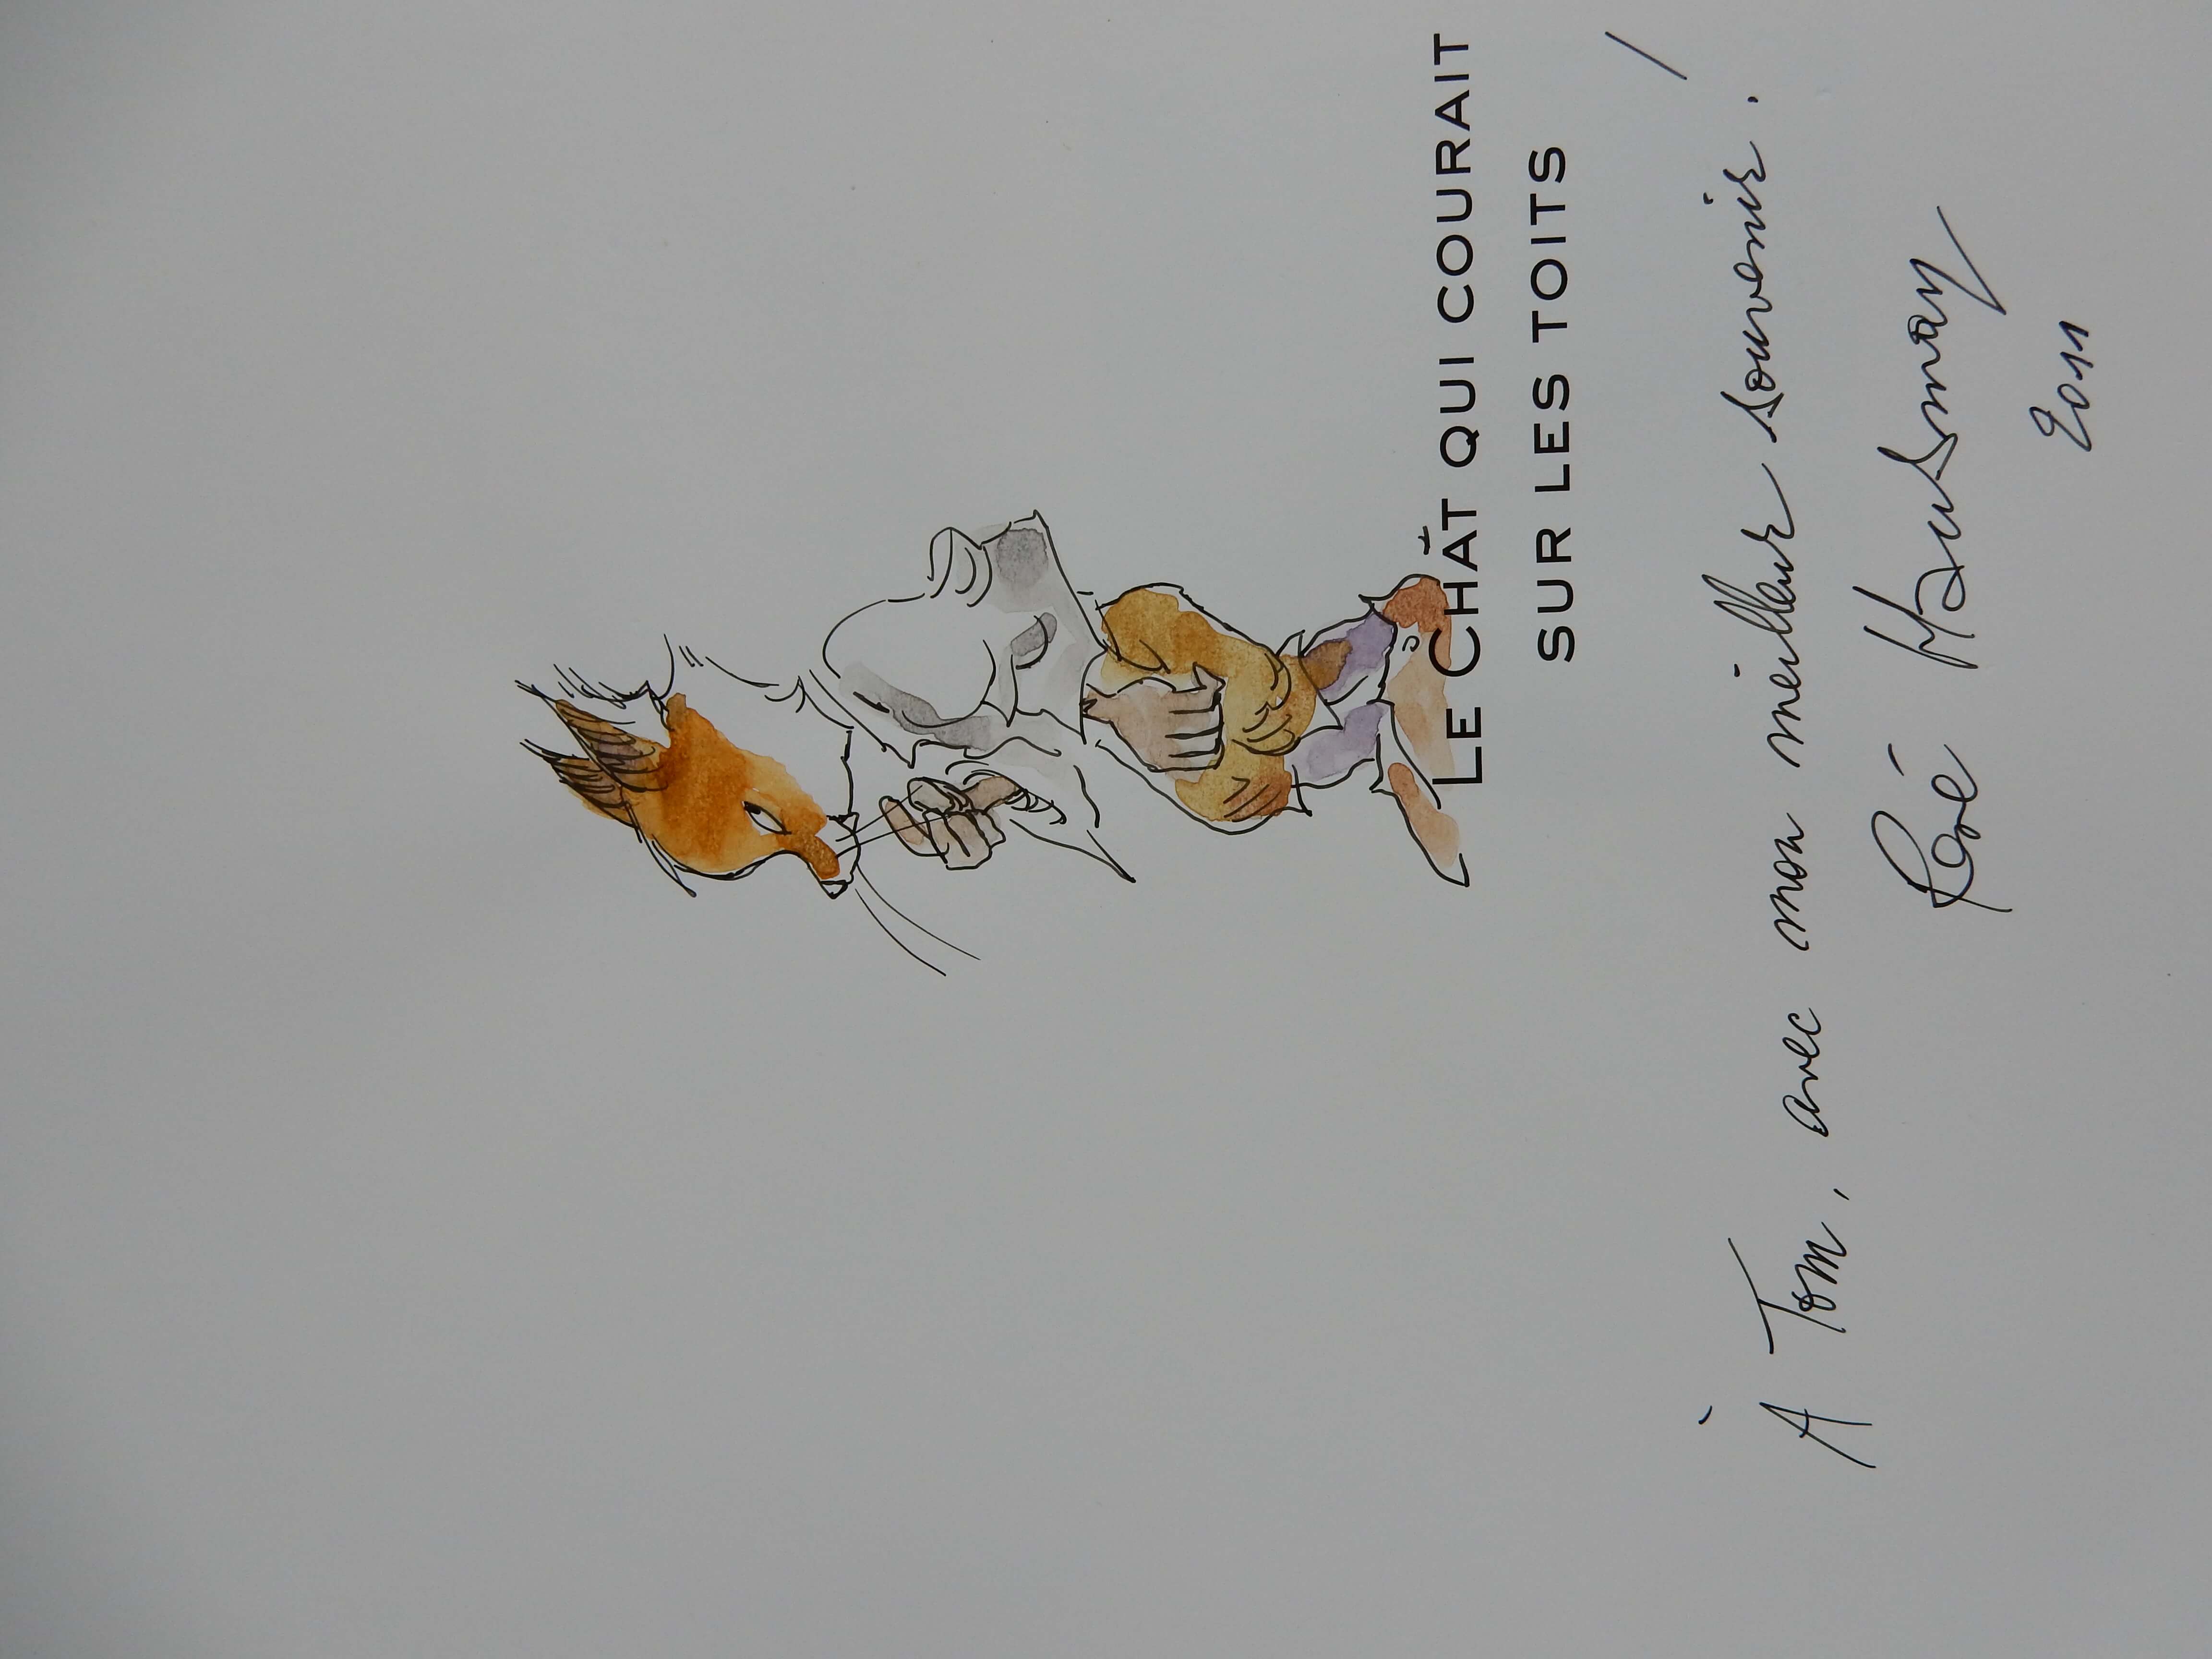 LE CHÂT QUI COURAIT
SUR LES TOITS
À Tom, avec mon meilleur souvenir !
René Hausman
2011